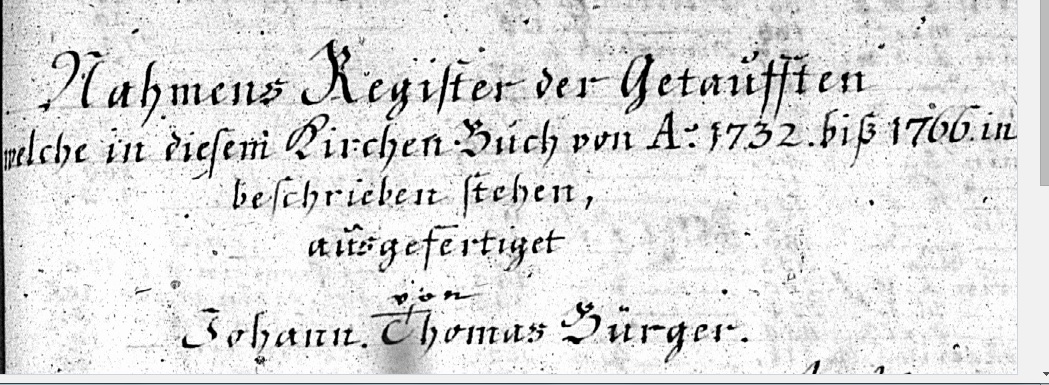 Nahmens Register der Getaufften
welche in diesem Kirchen-Buch von A: 1732. biß 1766. in
beschrieben stehen,
ausgefertiget
von
Johann. Thomas Bürger.